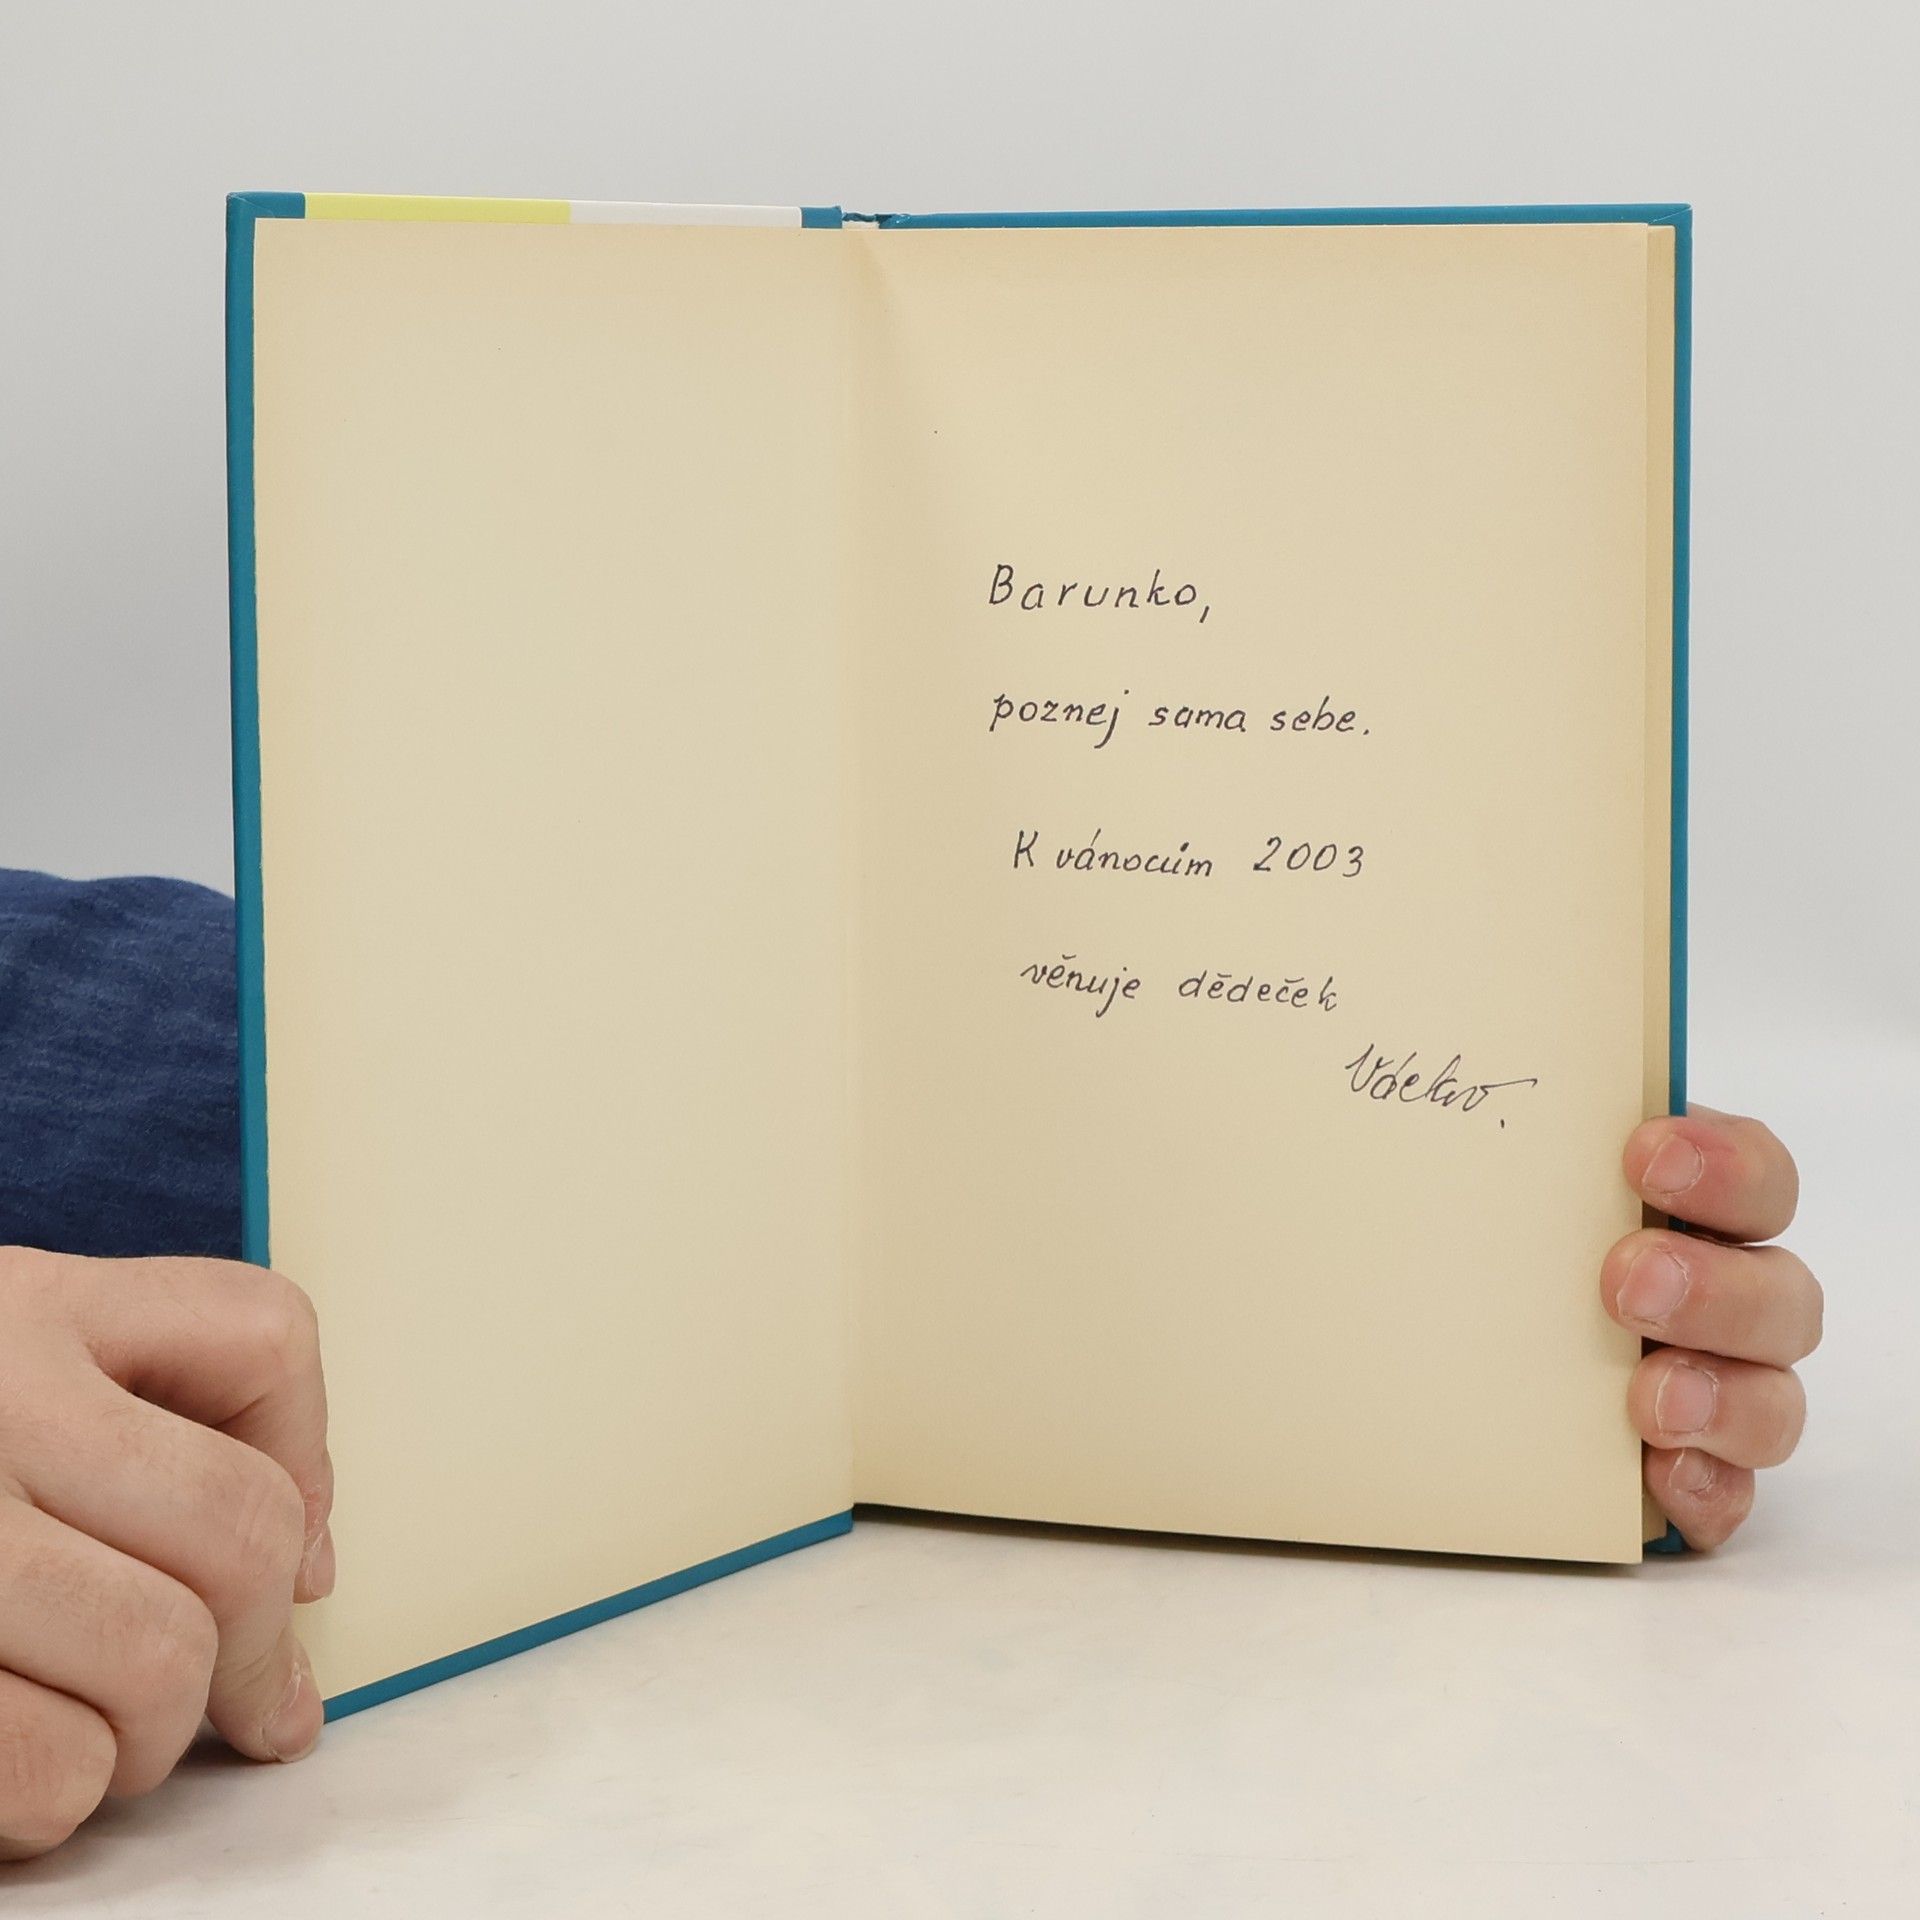 Barunko,
poznej sama sebe.
K vánocům 2003
věnuje dědeček
Václav.